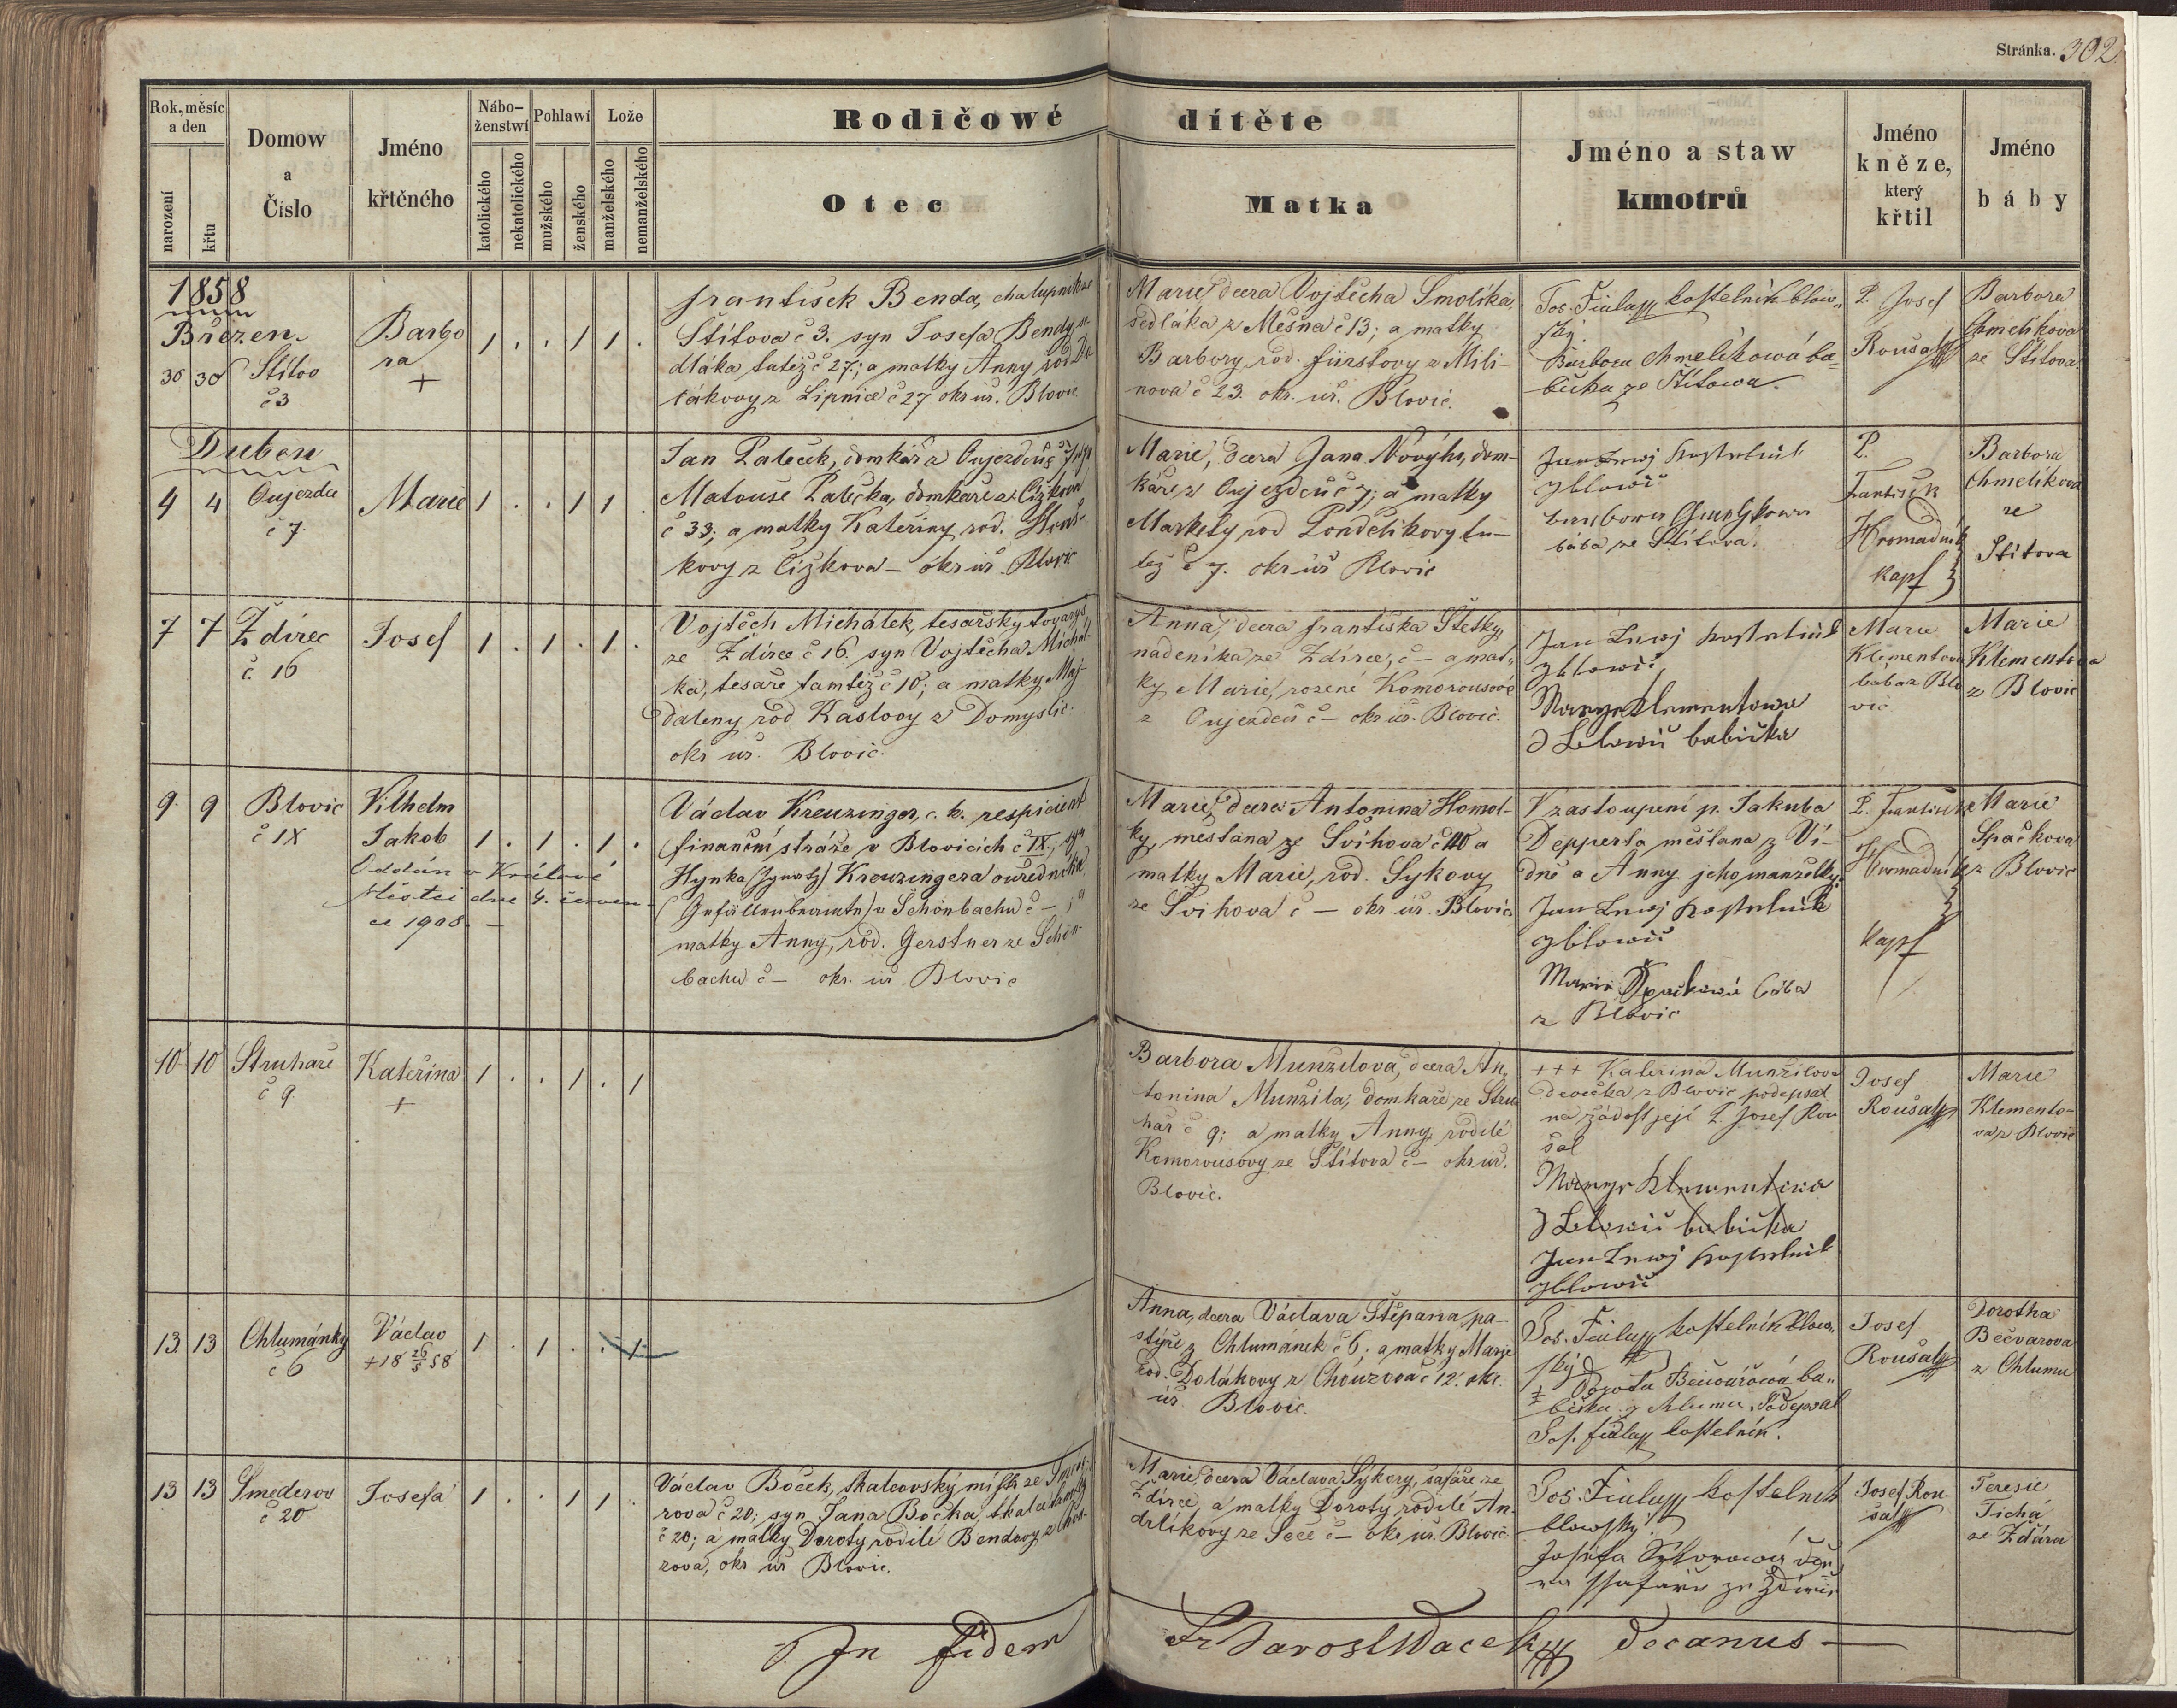 Stránka. 302
Rok, měsíc
a den
narození
křtu
Domow
a
Číslo
Jméno
křtěného
Nábo-
ženstwí
katolického
nekatolického
Pohlawí
mužského
ženského
Lože
manželského
nemanželského
Rodičowé dítěte
Otec
Matka
Jméno a staw
kmotrů
Jméno
kněze,
který
křtil
Jméno
báby
1858
Březen
30 30 Štítov
č 3
Barbo
ra
+
1 . . 1 1 .
František Benda, chalupník ze
Štítova č 3. syn Josefa Bendy, se
dláka tutéž č 27; a matky Anny rod.
z Lipnice č 27 okr úř. Blovic
Marie, dcera Vojtěcha Smolíka,
sedláka z Měšna č 13; a matky
Barbory, rod. Fürstovy z Mili-
nova č 23. okr. úř. Blovic.
Jos. Fiala kostelník blow-
ský.
Barbora Chmelíkowá ba=
bička ze Štítowa.
P. Josef
Roušal
Barbora
Chmelíkova
ze Štítova.
Duben
4 4 Oujezdec
č 7.
Marie
1 . . 1 1 .
Jan Paleček, domkář z Oujezdce č 7 syn
Matouše Palečka, domkáře z Čížkova
č 33; a matky Kateřiny rod.
kovy z Čížkova – okr úř. Blovic
Marie, dcera Jana Nového, dom-
káře z Oujezdce č 7; a matky
Markety rod Pondělíkovy tu-
též č 7. okr úř Blovic
Jan kostelník
z blowic
bába ze Štítova.
P.
František
Hromadník
kapl
Barbora
Chmelíkova
ze
Štítova
7 7 Ždírec
č 16
Josef
1 . 1 . 1 .
Vojtěch Michálek, tesařský tovaryš
ze Ždírce č 16. syn Vojtěcha Michál-
ka, tesaře tamtéž č 10; a matky Maj-
daleny rod Kaslovy z Domyslic
okr úř. Blovic.
Anna, dcera Františka Štetky,
nádeníka ze Ždírce, č – a mat-
ky Marie, rozené Komorousově
z Oujezdce č – okr úř. Blovic.
Jan kostelník
z blowic
Marye Klementowa
z Blowic babička
Marie
Klementova
baba z Blo
vic
Marie
Klementova
z Blovic
9. 9 Blovic
č IX
Vilhelm
Jakob
1 . 1 . 1 .
Oddán v Králově
Městci dne 4. červen-
ce 1908. –
Václav Kreuzinger, c. k. respicient
finanční stráže v Blovicích č IX; syn
Hynka (Ignatz) Kreuzingera ouředníka
(Gefällenbeamte) v Schönbachu č – ; a
matky Anny, rod. Gerstner ze Schön-
bachu č – okr. úř Blovic
Marie, dcera Antonína Homol-
ky, měšťana ze Švihova č 110 a
matky Marie, rod. Sykovy
ze Švihova č – okr úř. Blovic
V zastoupení p. Jakuba
Depperta měšťana z Ví-
dně a Anny jeho manželky:
Jan kostelník
z blowic
Marie Špačkowá bába
z Blovic
P. František
Hromadník
kapl
Marie
Špačkova
z Blovic
10 10 Struhaře
č 9.
Kateřina
+
1 . . 1 . 1
Barbora Munzilova, dcera An-
tonína Munžila, domkáře ze Stru
hař č 9; a matky Anny, rodilé
Komorousovy ze Štítova č – okr úř.
Blovic.
+++ Kateřina Munžilova
děvečka z Blovic podepsal
na žádost její P. Josef Rou
šal
Marye Klementowa
z Blowic babička
Jan kostelník
z blowic
Josef
Roušal
Marie
Klemento-
va z Blovic
13. 13 Chlumánky
č 6
Václav
+ 18 26/5 58
1 . 1 . . 1
Anna, dcera Václava Štěpana, pa-
stýře z Chlumánek č 6; a matky Marie
rod. Dolákovy z Chouzova č 12. okr.
úř. Blovic.
Jos. Fiala kostelník blow-
ský
‡ Dorota Bečwářowá ba-
bička z Chlumu, Podepsal
Jos. Fiala kostelník.
Josef
Roušal
Dorotha
Bečvarova
z Chlumu
13 13 Smederov
č 20
Josefa
1 . . 1 1 .
Václav Boček, tkalcovský mistr ze Smede-
rova č 20; syn Jana Bočka, tkalce tamtéž
č 20; a matky Doroty rodilé Bendovy z Chou-
zova, okr úř Blovic.
Marie, dcera Václava Sýkory, šafáře ze
Ždírce, a matky Doroty rodilé An-
drlíkovy ze Seče č – okr úř. Blovic
Jos. Fiala kostelník
blowský.
Josefa Sykorowá dce
ra ssafáře ze Ždírce
Josef Rou-
šal
Teresie
Tichá
ze Ždára
In fidem
Fr Jarosl Waceк decanus –